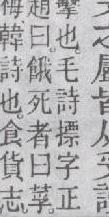 之屬皆从
擊也。毛詩摽字正
趙曰。餓死者曰莩。
梅韓詩也。食貨志